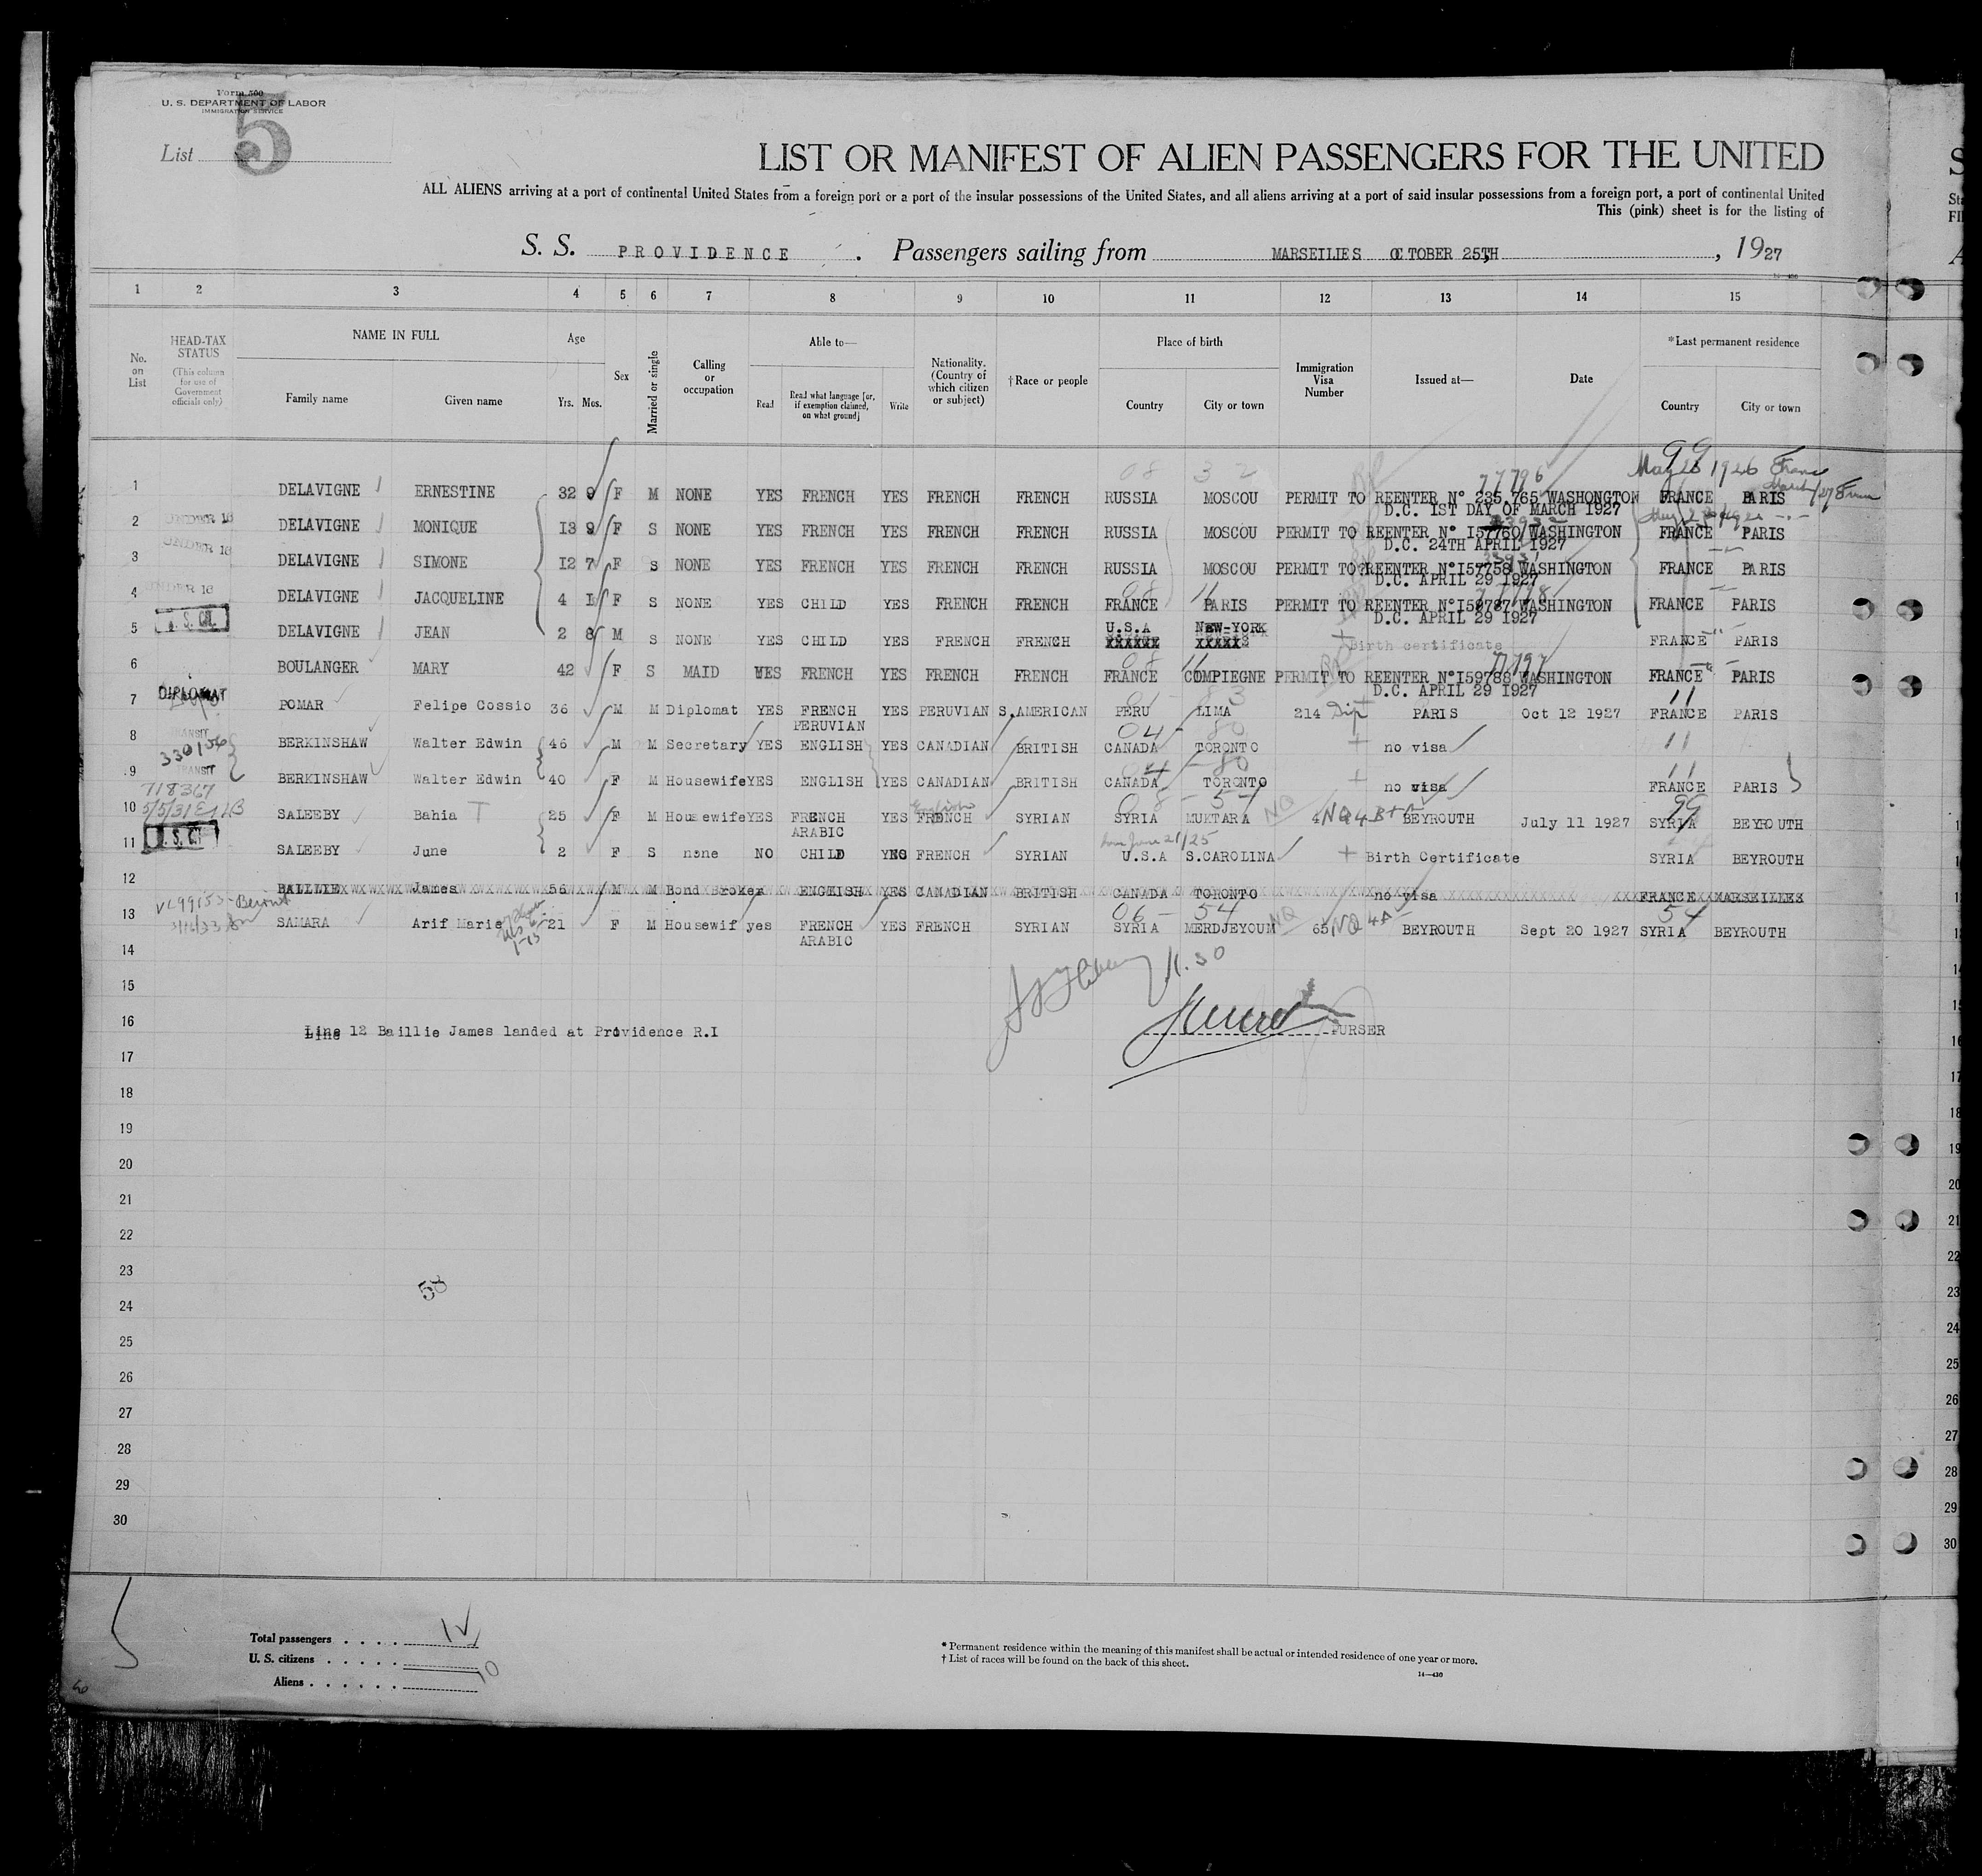 Form 500
U. S. DEPARTMENT OF LABOR
IMMIGRATION SERVICE
List 5
LIST OR MANIFEST OF ALIEN PASSENGERS FOR THE UNITED
ALL ALIENS arriving at a port of continental United States from a foreign port or a port of the insular possessions of the United States, and all aliens arriving at a port of said insular possessions from a foreign port, a port of continental United
This (pink) sheet is for the listing of
S. S. PROVIDENCE . Passengers sailing from MARSEILLES OCTOBER 25TH, 1927
1 2 3 4 5 6 7 8 9 10 11 12 13 14 15
No. on List
HEAD-TAX STATUS (This column for use of Government officials only)
NAME IN FULL
Family name Given name
Age
Yrs. Mos.
Sex
Married or single
Calling or occupation
Able to—
Read Read what language [or, if exemption claimed, on what ground] Write
Nationality. (Country of which citizen or subject)
†Race or people
Place of birth
Country City or town
Immigration Visa Number
Issued at—
Date
*Last permanent residence
Country City or town
1 DELAVIGNE ERNESTINE 32 9 F M NONE YES FRENCH YES FRENCH FRENCH RUSSIA MOSCOU PERMIT TO REENTER N° 235,765 WASHONGTON FRANCE PARIS
D.C. 1ST DAY OF MARCH 1927
2 UNDER 16 DELAVIGNE MONIQUE I3 9 F S NONE YES FRENCH YES FRENCH FRENCH RUSSIA MOSCOU PERMIT TO REENTER N° I57760/WASHINGTON FRANCE PARIS
D.C. 24TH APRIL 1927
3 UNDER 16 DELAVIGNE SIMONE I2 7 F S NONE YES FRENCH YES FRENCH FRENCH RUSSIA MOSCOU PERMIT TO REENTER N°I57758 WASHINGTON FRANCE PARIS
D.C. APRIL 29 1927
4 UNDER 16 DELAVIGNE JACQUELINE 4 I F S NONE YES CHILD YES FRENCH FRENCH FRANCE PARIS PERMIT TO REENTER N°I59787 WASHINGTON FRANCE PARIS
D.C. APRIL 29 1927
5 DELAVIGNE JEAN 2 8 M S NONE YES CHILD YES FRENCH FRENCH U.S.A NEW-YORK Birth certificate FRANCE PARIS
6 BOULANGER MARY 42 F S MAID YES FRENCH YES FRENCH FRENCH FRANCE COMPIEGNE PERMIT TO REENTER N°I59788 WASHINGTON FRANCE PARIS
D.C. APRIL 29 1927
7 DIPLOMAT POMAR Felipe Cossio 36 M M Diplomat YES FRENCH YES PERUVIAN S.AMERICAN PERU LIMA 214 Dip PARIS Oct 12 1927 FRANCE PARIS
PERUVIAN
8 TRANSIT BERKINSHAW Walter Edwin 46 M M Secretary YES ENGLISH YES CANADIAN BRITISH CANADA TORONTO no visa
330156
9 TRANSIT BERKINSHAW Walter Edwin 40 F M Housewife YES ENGLISH YES CANADIAN BRITISH CANADA TORONTO no visa FRANCE PARIS
718367
10 SALEEBY Bahia 25 F M Housewife YES FRENCH YES FRENCH SYRIAN SYRIA MUKTARA BEYROUTH July 11 1927 SYRIA BEYROUTH
ARABIC
11 SALEEBY June 2 F S none NO CHILD NO FRENCH SYRIAN U.S.A S.CAROLINA Birth Certificate SYRIA BEYROUTH
12 BAILLIE James 56 M M Bond Broker ENGLISH YES CANADIAN BRITISH CANADA TORONTO no visa FRANCE MARSEILLES
13 SAMARA Arif Marie 21 F M Housewif yes FRENCH YES FRENCH SYRIAN SYRIA MERDJEYOUM 65 NQ BEYROUTH Sept 20 1927 SYRIA BEYROUTH
ARABIC
14
15
16 Line 12 Baillie James landed at Providence R.I PURSER
17
18
19
20
21
22
23
58
24
25
26
27
28
29
30
Total passengers
U. S. citizens
Aliens 10
* Permanent residence within the meaning of this manifest shall be actual or intended residence of one year or more.
† List of races will be found on the back of this sheet.
14—430